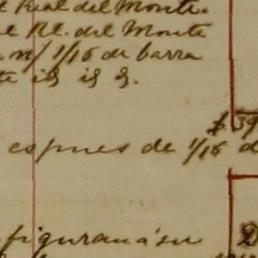 Real del Monte.
el Rl. del Monte
n/ 1/16 de barra
te id id d.
$ 39
espues de 1/16 d
figuraná su D